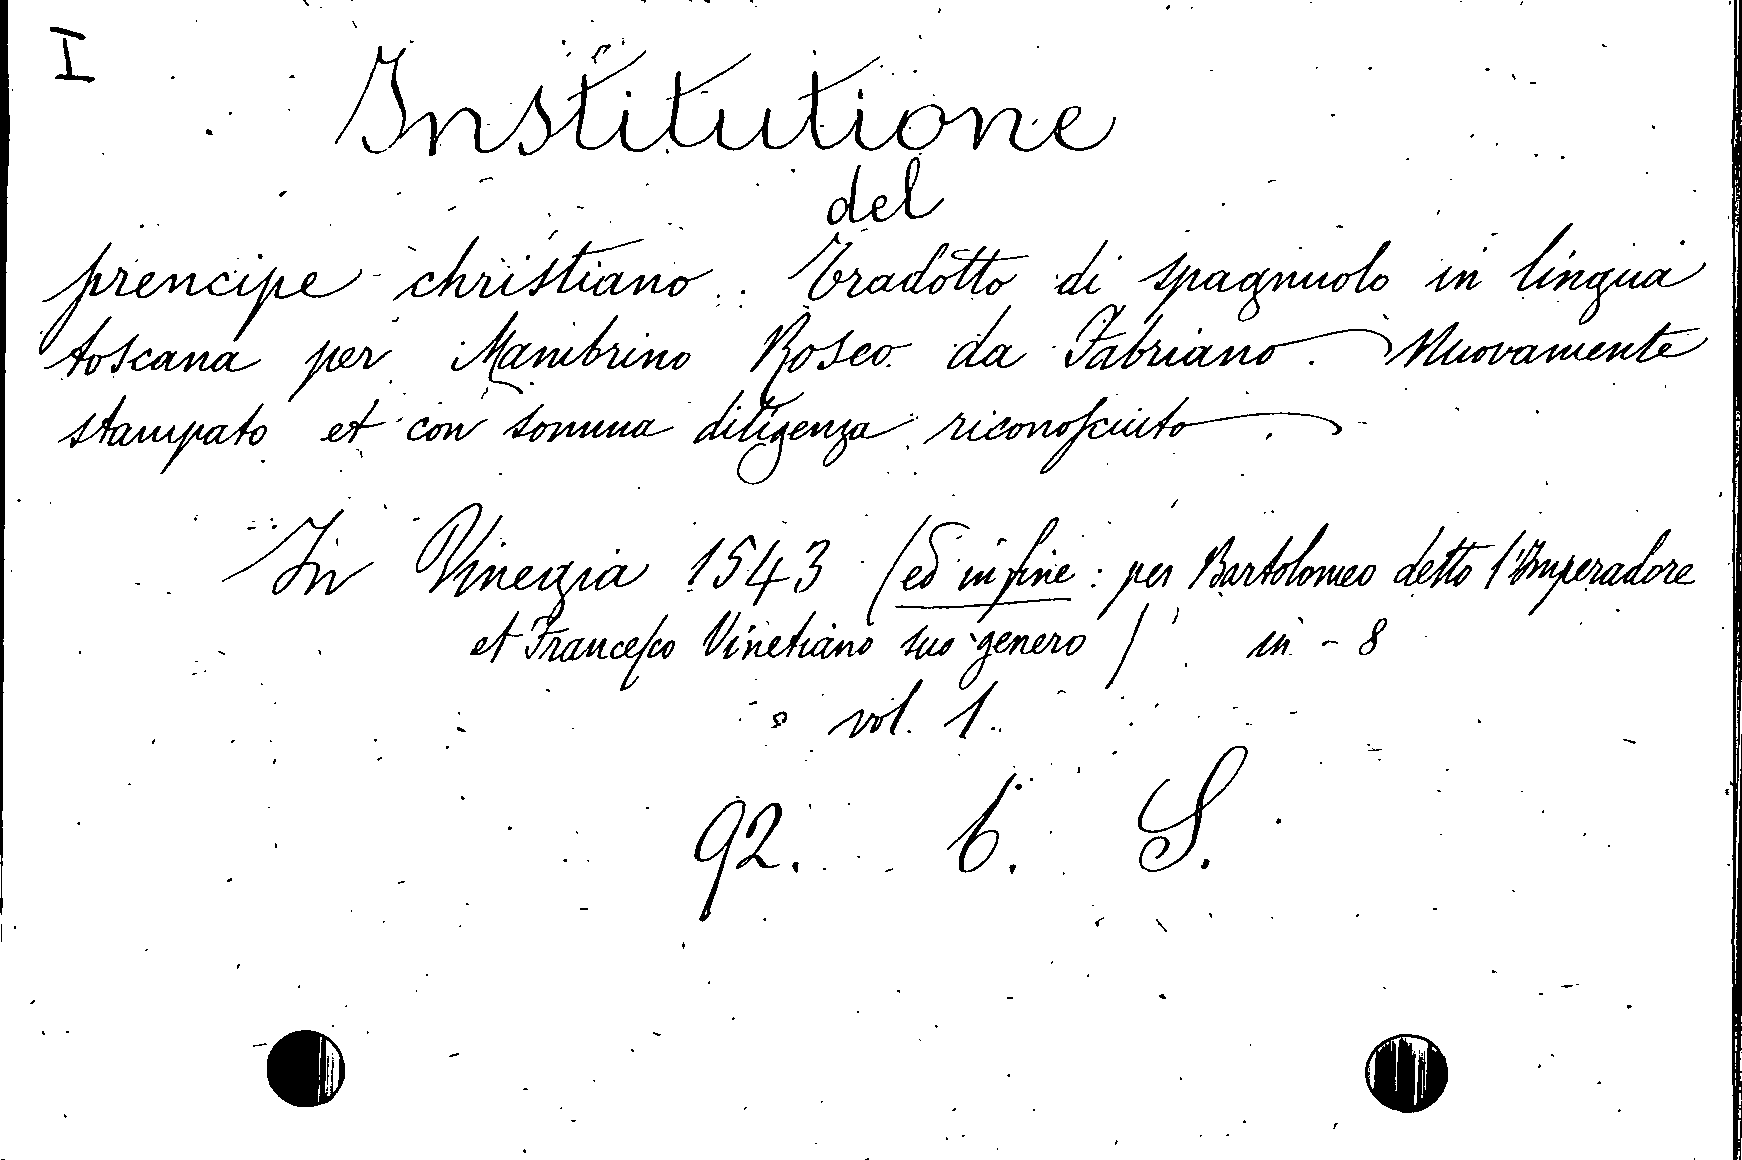 I
Institutione
del
prencipe christiano. Tradotto di spagnuolo in lingua
toscana per Mambrino Roseo da Fabriano. Nuovamente
stampato et con somma diligenza riconosciuto.
In Vinegia 1543 (ed in fine: per Bartolomeo detto l'Imperadore
et Francesco Vinetiano suo genero) in-8
vol. 1.
92. 6. S.